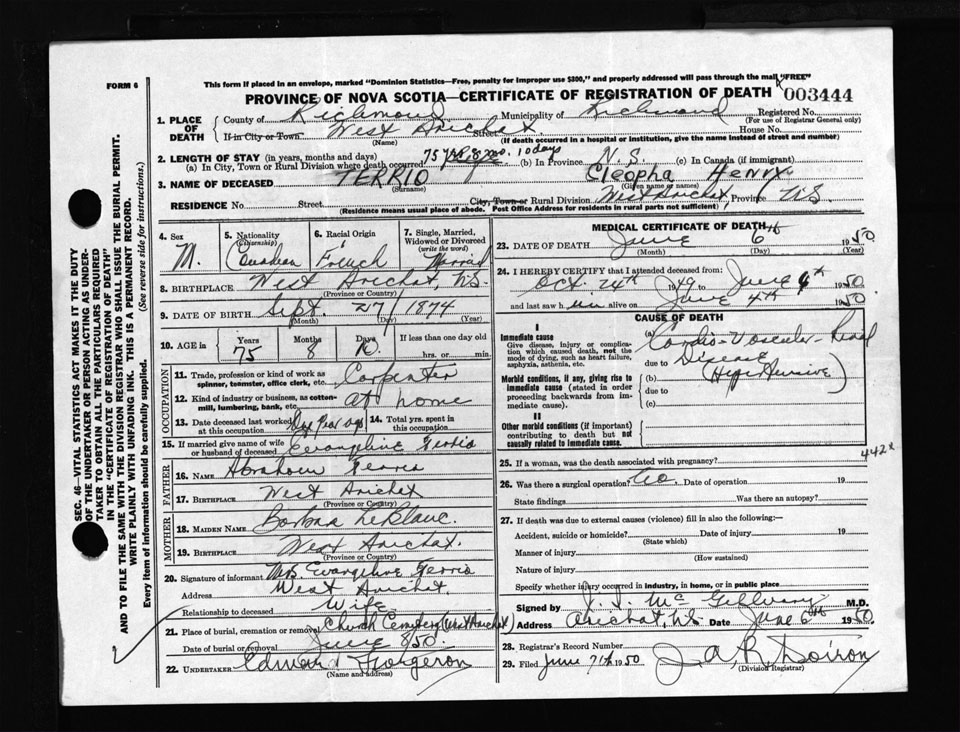 FORM 6
This form if placed in an envelope, marked "Dominion Statistics—Free, penalty for improper use $300," and properly addressed will pass through the mail "FREE"
PROVINCE OF NOVA SCOTIA—CERTIFICATE OF REGISTRATION OF DEATH 003444
1. PLACE OF DEATH
County of Richmond Municipality of Richmond Registered No.
(For use of Registrar General only)
If in City or Town West Arichat Street House No.
(Name) (If death occurred in a hospital or institution, give the name instead of street and number)
2. LENGTH OF STAY (in years, months and days)
(a) In City, Town or Rural Division where death occurred 75 yrs. 8 mo. 10 days (b) In Province N.S. (c) In Canada (if immigrant)
3. NAME OF DECEASED TERRIO Cleopha Henry
(Surname) (Given name or names)
RESIDENCE No. Street City, Town or Rural Division West Arichat, Province N.S.
(Residence means usual place of abode. Post Office Address for residents in rural parts not sufficient)
SEC. 46—VITAL STATISTICS ACT MAKES IT THE DUTY
OF THE UNDERTAKER OR PERSON ACTING AS UNDER-
TAKER TO OBTAIN ALL THE PARTICULARS REQUIRED
IN THE "CERTIFICATE OF REGISTRATION OF DEATH"
AND TO FILE THE SAME WITH THE DIVISION REGISTRAR WHO SHALL ISSUE THE BURIAL PERMIT.
WRITE PLAINLY WITH UNFADING INK. THIS IS A PERMANENT RECORD.
Every item of information should be carefully supplied. (See reverse side for instructions.)
4. Sex M.
5. Nationality (Citizenship) Canadian
6. Racial Origin French
7. Single, Married, Widowed or Divorced (write the word) Married
8. BIRTHPLACE West Arichat, N.S.
(Province or Country)
9. DATE OF BIRTH Sept. 27 1874
(Month) (Day) (Year)
10. AGE in Years 75 Months 8 Days 10 If less than one day old
hrs. or min.
OCCUPATION
11. Trade, profession or kind of work as spinner, teamster, office clerk, etc. Carpenter
12. Kind of industry or business, as cotton-mill, lumbering, bank, etc. at home
13. Date deceased last worked at this occupation One year ago
14. Total yrs. spent in this occupation
15. If married give name of wife or husband of deceased Evangeline Terrio
FATHER
16. NAME Abraham Terrio
17. BIRTHPLACE West Arichat
(Province or Country)
MOTHER
18. MAIDEN NAME Barbara LeBlanc.
19. BIRTHPLACE West Arichat.
(Province or Country)
20. Signature of informant Mrs. Evangeline Terrio
Address West Arichat.
Relationship to deceased Wife
21. Place of burial, cremation or removal Church Cemetery (West Arichat)
Date of burial or removal June 8 50.
22. UNDERTAKER Edward Forgeron
(Name and address)
MEDICAL CERTIFICATE OF DEATH
23. DATE OF DEATH June 6th 1950
(Month) (Day) (Year)
24. I HEREBY CERTIFY that I attended deceased from:
Oct. 24th 1949 to June 6th 1950.
and last saw him alive on June 4th 1950
CAUSE OF DEATH
I
Immediate cause
Give disease, injury or complication which caused death, not the mode of dying, such as heart failure, asphyxia, asthenia, etc.
(a) Cardio-Vascular-Renal
due to Disease
Morbid conditions, if any, giving rise to immediate cause (stated in order proceeding backwards from immediate cause).
(b) (Hypertensive)
due to
(c)
II
Other morbid conditions (if important) contributing to death but not causally related to immediate cause.
442x
25. If a woman, was the death associated with pregnancy?
26. Was there a surgical operation? No. Date of operation 19
State findings Was there an autopsy?
27. If death was due to external causes (violence) fill in also the following:—
Accident, suicide or homicide? Date of injury 19
(State which)
Manner of injury
(How sustained)
Nature of injury
Specify whether injury occurred in industry, in home, or in public place
Signed by J. J. McGillivray M.D.
Address Arichat, N.S. Date June 6th 1950
28. Registrar's Record Number
29. Filed June 7th 1950 J A R Doiron
(Division Registrar)